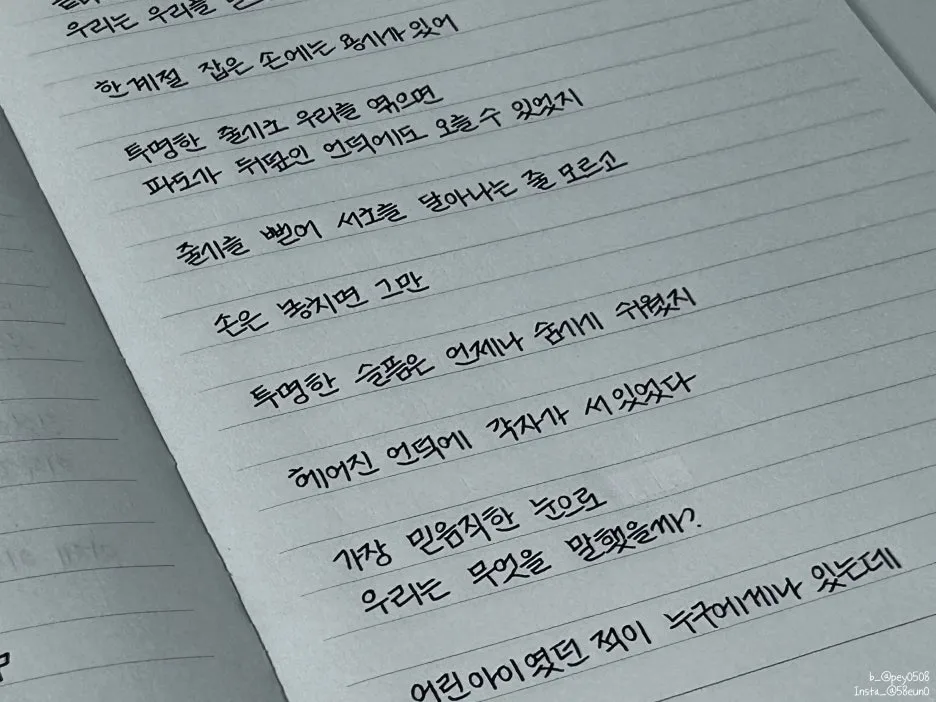 우리는 우리를
한 계절 잡은 손에는 용기가 있어
투명한 줄기로 우리를 엮으면
파도가 뒤덮인 언덕에도 오를 수 있었지
줄기를 뻗어 서로를 달아나는 줄 모르고
손은 놓치면 그만
투명한 슬픔은 언제나 숨기게 쉬웠지
헤어진 언덕에 각자가 서 있었다
가장 믿음직한 눈으로
우리는 무엇을 말했을까?
어린아이였던 적이 누구에게나 있는데
b_@pey0508
Insta_@58eun0